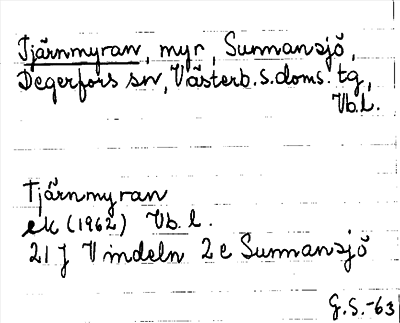 Tjärnmyran, myr, Sunnansjö,
Degerfors sn, Västerb. s. doms. tg,
Vb.l.
Tjärnmyran
ek (1962) Vb. l.
21 J Vindeln 2 e Sunnansjö
G.S.-63